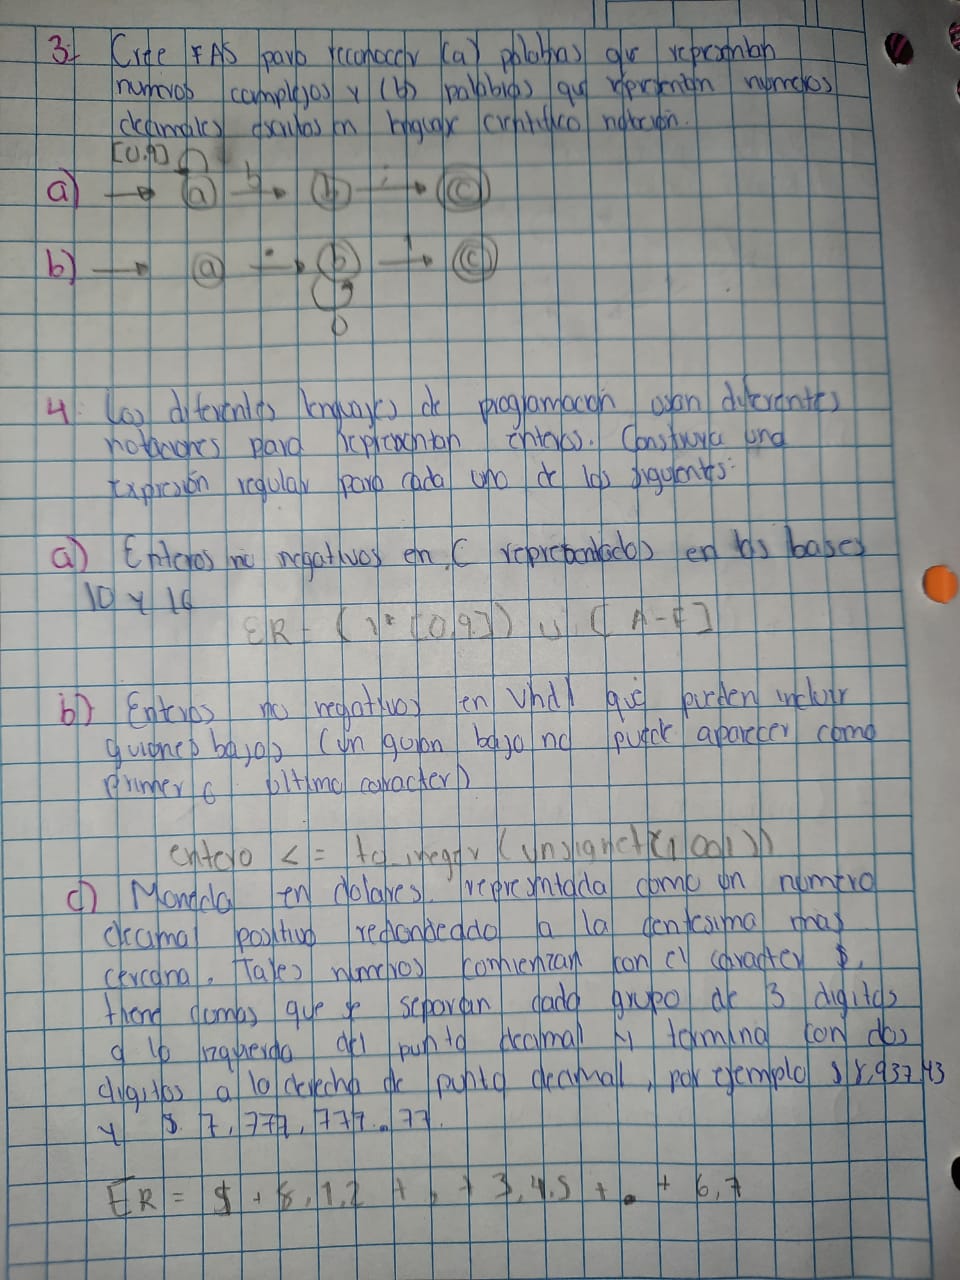 3: Cree FAS para reconocer (a) palabras que representan
numeros complejos y (b) palabras que representan numeros
decimales escritos en lenguaje cientifico notación.
[0,9]
a) → a b → b i → c
b) → a . → b → c
0
4. Los diferentes lenguajes de programacion usan diferentes
notaciones para representan enteros. Construya una
expresión regular para cada uno de los siguientes:
a) Enteros no negativos en C representados en las bases
10 y 16
ER = ( 1* [0,9]) U [ A-F]
b) Enteros no negativos en Vhdl que pueden incluir
guiones bajos (un guion bajo no puede aparecer como
primer o ultimo caracter)
entero <= to_ (1001))
c) Moneda en dolares representada como un numero
decimal positivo redondeado a la centesima mas
cercana. Tales numeros comienzan con el caracter $,
tiene comas que se separan cada grupo de 3 digitos
a la izquierda del punto decimal y termina con dos
digitos a la derecha de punto decimal, por ejemplo $ 8,937.43
y $ 7,777,777.77.
ER = $ + 8,1,2 + , + 3,4,5 + . + 6,7